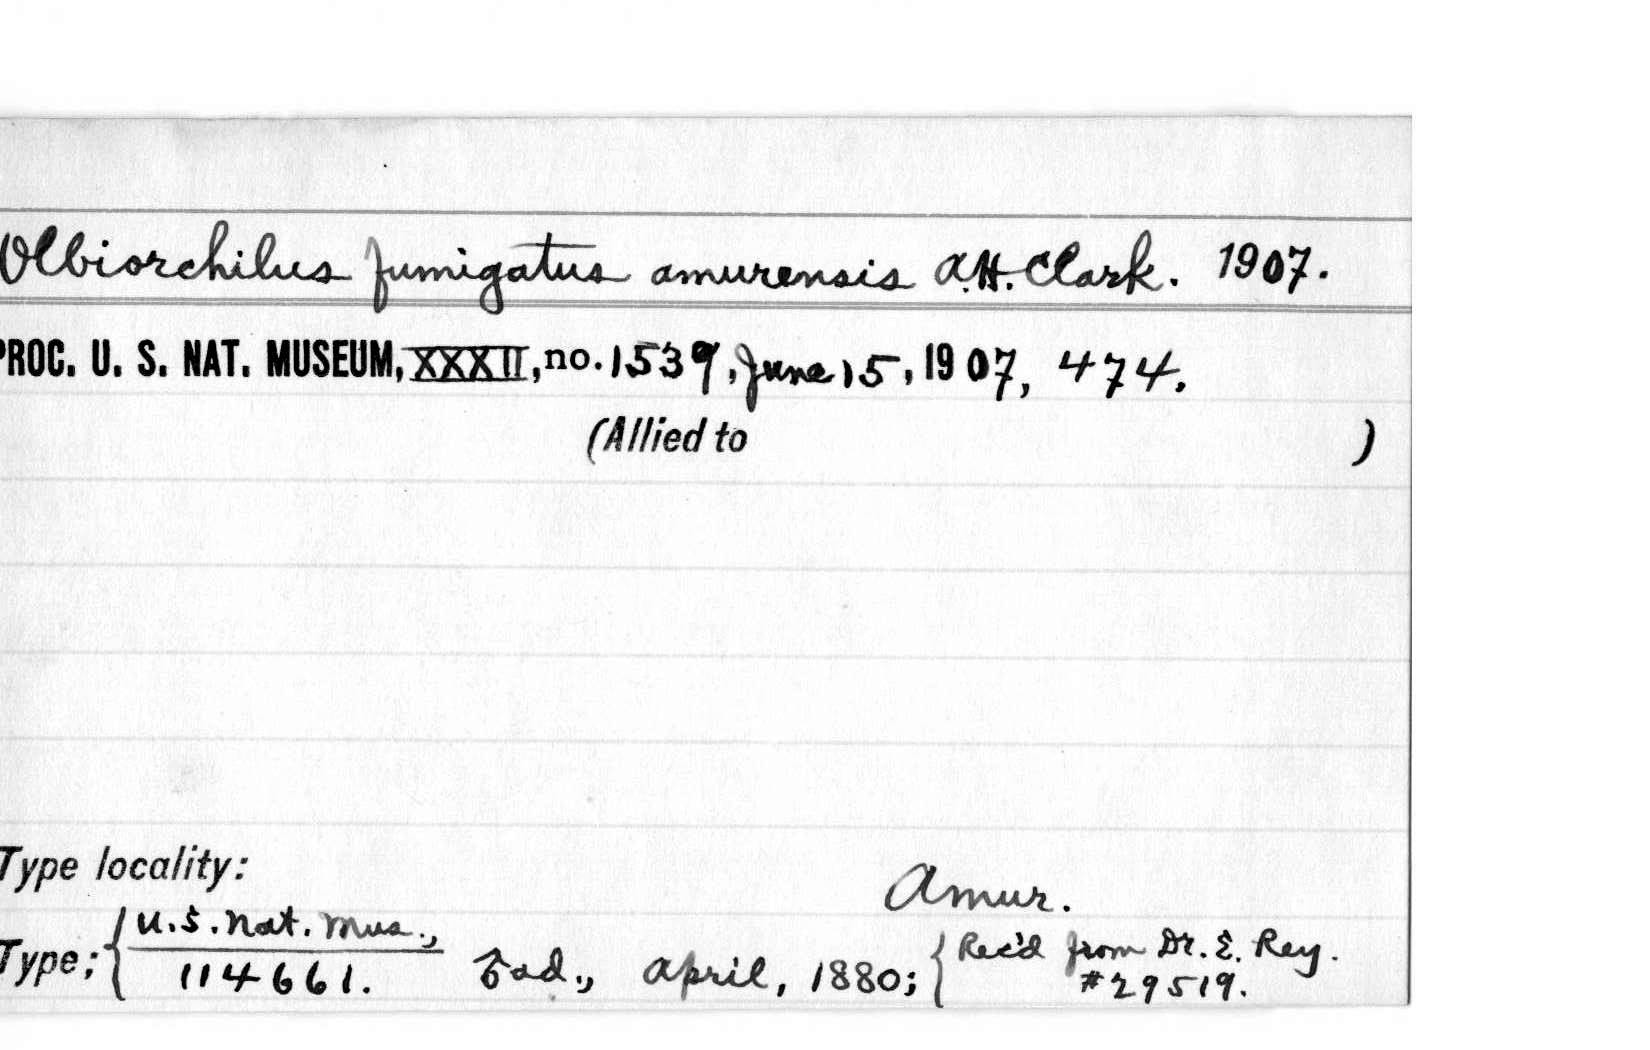 Olbiorchilus fumigatus amurensis A.H. Clark. 1907.
PROC. U. S. NAT. MUSEUM, XXXII, no. 1539, June 15, 1907, 474.
(Allied to )
Type locality:
Amur.
Type; { U.S. Nat. Mus., 114661. ad., April, 1880; { Rec'd from Dr. E. Rey. #29519.